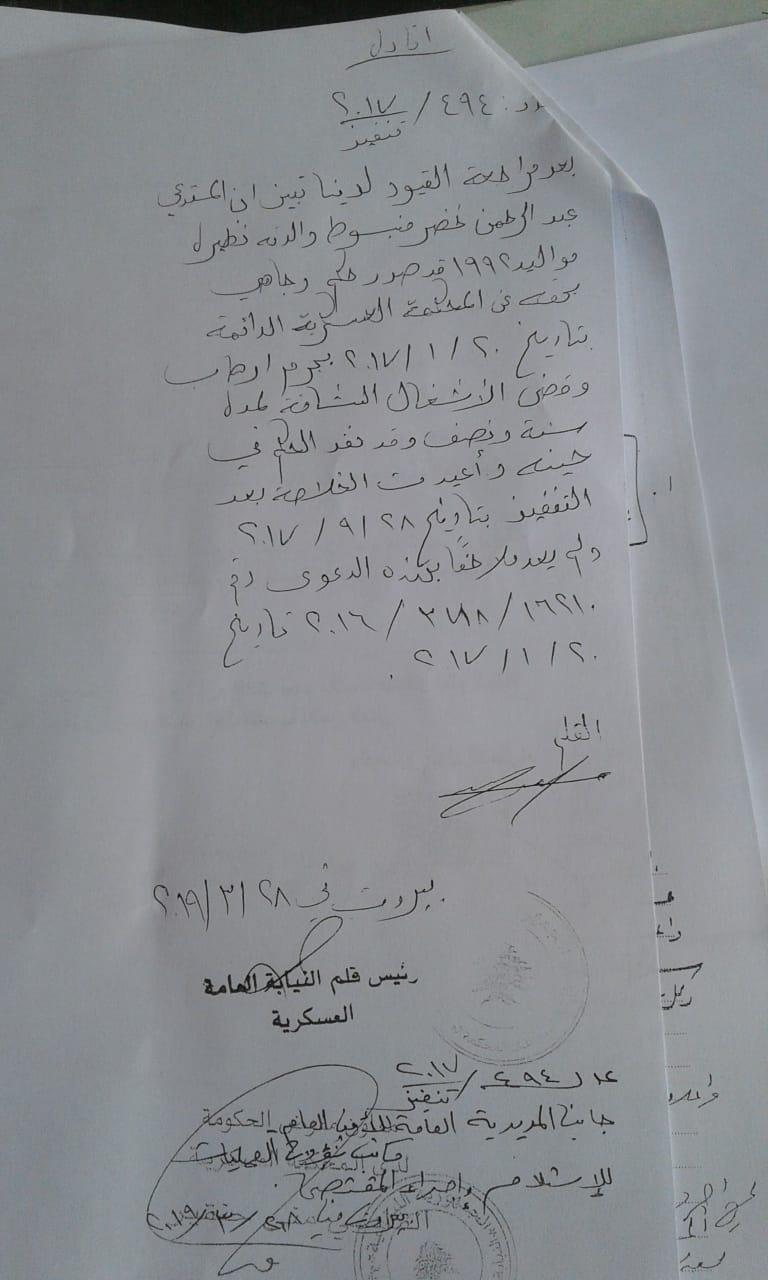 افادة
عدد: ٤٩٤ / ٢٠١٧
تنفيذ
بعد مراجعة القيود لدينا تبين ان المستدعي
عبد الرحمن خضر منبسوط والدته نظيرة
مواليد ١٩٩٢ قد صدر حكم وجاهي
بحقه عن المحكمة العسكرية الدائمة
بتاريخ ٢٠ / ١ / ٢٠١٧ بجرم ارهاب
وقضى الأشغال الشاقة لمدة
سنة ونصف وقد نفذ الحكم في
حينه وأعيدت الخلاصة بعد
التنفيذ بتاريخ ٢٨ / ٩ / ٢٠١٧
ولم يعد ملاحقاً بهذه الدعوى رقم
٢٠١٦ تاريخ
٢٠ / ١ / ٢١٧ .
القلم
بيروت في ٢٨ / ٣ / ٢٠١٩
رئيس قلم النيابة العامة
العسكرية
عدد ٤٩٤ / ٢٠١٧
تنفيذ
جانب المديرية العامة
للإستلام وإجراء المقتضى